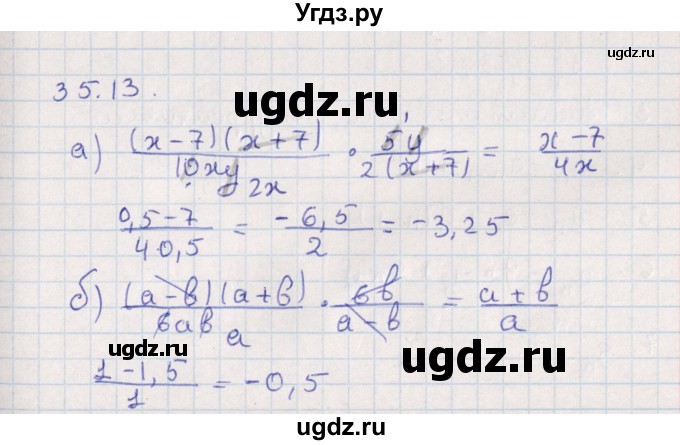 Угдз.ру
ugdz.ru
35.13.
ugdz.ru
а) (x-7)(x+7)/10xy 2x · 5y/2(x+7) = x-7/4x
0,5-7/4 0,5 = -6,5/2 = -3,25
б) (a-b)(a+b)/6ab a · 6b/a-b = a+b/a
ugdz.ru
ugdz.ru
1-1,5/1 = -0,5
ugdz.ru